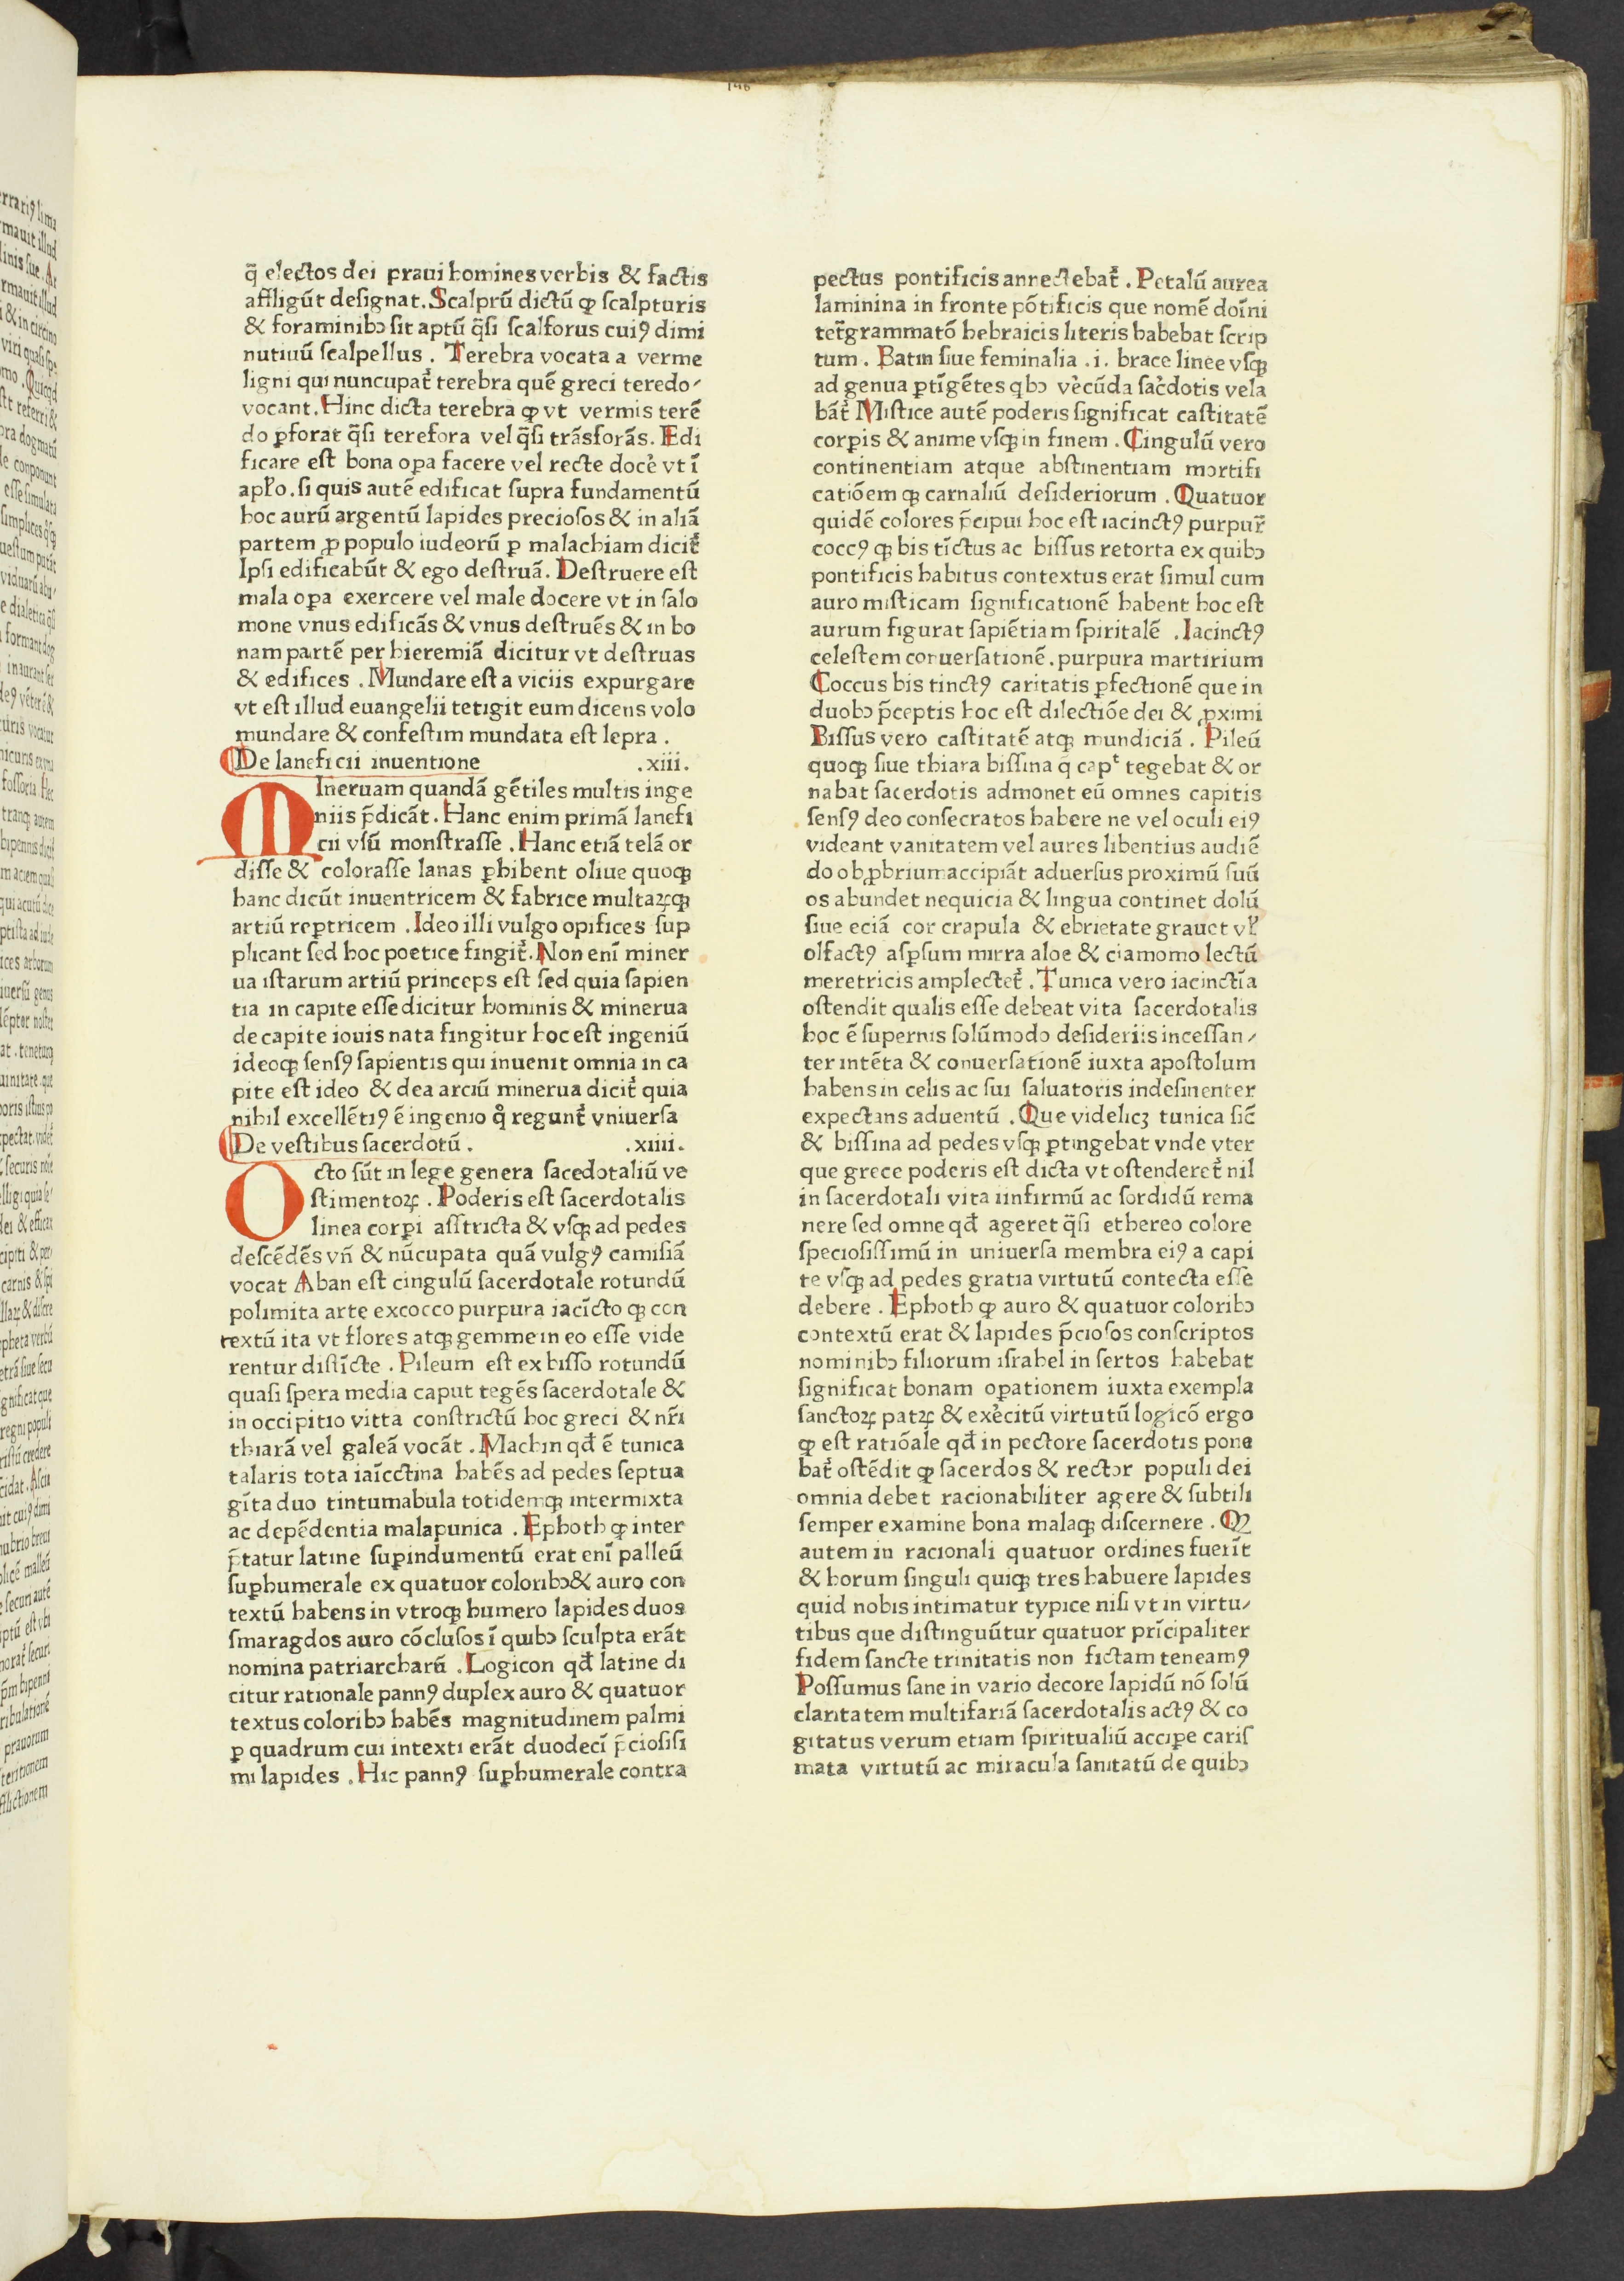 q̄ electos dei praui homines verbis & factis
affligūt designat. Scalprū dictū ꝙ scalpturis
& foraminibꝫ sit aptū q̄si scalforus cuiꝯ dimi
nutiuū scalpellus . Terebra vocata a verme
ligni qui nuncupat̉ terebra quē greci teredo⸗
vocant. Hinc dicta terebra ꝙ vt vermis terē
do ꝑforat q̄si terefora vel q̄si trāsforās. Edi
ficare est bona oꝑa facere vel recte doce̓ vt ī
apl̓o. si quis autē edificat supra fundamentū
hoc aurū argentū lapides preciosos & in aliā
partem ꝓ populo iudeorū ꝑ malachiam dicit̉
Ipsi edificabūt & ego destruā. Destruere est
mala oꝑa exercere vel male docere vt in salo
mone vnus edificās & vnus destruēs & in bo
nam partē per hieremiā dicitur vt destruas
& edifices . Mundare est a viciis expurgare
vt est illud euangelii tetigit eum dicens volo
mundare & confestim mundata est lepra .
De laneficii inuentione .xiii.
MIneruam quandā gētiles multis inge
niis p̄dicāt. Hanc enim primā lanefi
cii vsū monstrasse . Hanc etiā telā or
disse & colorasse lanas ꝑhibent oliue quoqꝫ
hanc dicūt inuentricem & fabrice multaꝝqꝫ
artiū reꝑtricem . Ideo illi vulgo opifices sup
plicant sed hoc poetice fingit̉. Non enī miner
ua istarum artiū princeps est sed quia sapien
tia in capite esse dicitur hominis & minerua
de capite iouis nata fingitur hoc est ingeniū
ideoqꝫ sensꝯ sapientis qui inuenit omnia in ca
pite est ideo & dea arciū minerua dicit̉ quia
nihil excellētiꝯ ē ingenio q̊ regunt̉ vniuersa
De vestibus sacerdotū . .xiiii.
Octo sūt in lege genera sacedotaliū ve
stimentoꝝ . Poderis est sacerdotalis
linea corꝑi astricta & vsqꝫ ad pedes
descēdēs vn̄ & nūcupata quā vulgꝯ camisiā
vocat Aban est cingulū sacerdotale rotundū
polimita arte excocco purpura iacīcto qꝫ con
textū ita vt flores atqꝫ gemme in eo esse vide
rentur distīcte . Pileum est ex bisso rotundū
quasi spera media caput tegēs sacerdotale &
in occipitio vitta constrictū hoc greci & nr̄i
thiarā vel galeā vocāt . Machin qđ ē tunica
talaris tota iaīcctina habēs ad pedes septua
gīta duo tintumabula totidemqꝫ intermixta
ac depēdentia malapunica . Ephoth ꝙ inter
p̄tatur latine suꝑindumentū erat enī palleū
suꝑhumerale ex quatuor coloribꝫ & auro con
textū habens in vtroqꝫ humero lapides duos
smaragdos auro cōclusos ī quibꝫ sculpta erāt
nomina patriarcharū . Logicon qđ latine di
citur rationale pannꝯ duplex auro & quatuor
textus coloribꝫ habēs magnitudinem palmi
ꝑ quadrum cui intexti erāt duodecī p̄ciosisi
mi lapides . Hic pannꝯ suꝑhumerale contra
pectus pontificis annectebat̉ . Petalū aurea
laminina in fronte pōtificis que nomē doīni
tet̄grammatō hebraicis literis habebat scrip
tum . Batin siue feminalia .i. brace linee vsqꝫ
ad genua ꝑtīgētes qbꝫ ve̓cūda sac̓dotis vela
bāt̉ Mistice autē poderis significat castitatē
corꝑis & anime vsqꝫ in finem . Cingulū vero
continentiam atque abstinentiam mortifi
catiōem qꝫ carnaliū desideriorum . Quatuor
quidē colores p̄cipui hoc est iacinctꝯ purpur̄
coccꝯ qꝫ bis tīctus ac bissus retorta ex quibꝫ
pontificis habitus contextus erat simul cum
auro misticam significationē habent hoc est
aurum figurat sapiētiam spiritalē . Iacinctꝯ
celestem conuersationē . purpura martirium
Coccus bis tinctꝯ caritatis ꝑfectionē que in
duobꝫ p̄ceptis hoc est dilectiōe dei & ꝓximi
Bissus vero castitatē atqꝫ mundiciā . Pileū
quoqꝫ siue thiara bissina q̄ capᵗ tegebat & or
nabat sacerdotis admonet eū omnes capitis
sensꝯ deo consecratos habere ne vel oculi eiꝯ
videant vanitatem vel aures libentius audiē
do obꝓbrium accipiāt aduersus proximū suū
os abundet nequicia & lingua continet dolū
siue eciā cor crapula & ebrietate grauet vl̓
olfactꝯ asꝑsum mirra aloe & ciamomo lectū
meretricis amplectet̉ . Tunica vero iacinctīa
ostendit qualis esse debeat vita sacerdotalis
hoc ē supernis solūmodo desideriis incessan⸗
ter intēta & conuersationē iuxta apostolum
habens in celis ac sui saluatoris indesinenter
expectans aduentū . Que videlicꝫ tunica sic̄
& bissina ad pedes vsqꝫ ꝑtingebat vnde vter
que grece poderis est dicta vt ostenderet̉ nil
in sacerdotali vita iinfirmū ac sordidū rema
nere sed omne qđ ageret q̄si ethereo colore
speciosissimū in uniuersa membra eiꝯ a capi
te vsqꝫ ad pedes gratia virtutū contecta esse
debere . Ephoth ꝙ auro & quatuor coloribꝫ
contextū erat & lapides p̄ciosos conscriptos
nominibꝫ filiorum israhel in sertos habebat
significat bonam oꝑationem iuxta exempla
sanctoꝝ patꝝ & exe̓citū virtutū logicō ergo
ꝙ est ratiōale qđ in pectore sacerdotis pone
bat̉ ostēdit ꝙ sacerdos & rector populi dei
omnia debet racionabiliter agere & subtili
semper examine bona malaqꝫ discernere . Qꝫ
autem in racionali quatuor ordines fuerīt
& horum singuli quiqꝫ tres habuere lapides
quid nobis intimatur typice nisi vt in virtu⸗
tibus que distinguūtur quatuor prīcipaliter
fidem sancte trinitatis non fictam teneamꝯ
Possumus sane in vario decore lapidū nō solū
claritatem multifariā sacerdotalis actꝯ & co
gitatus verum etiam spiritualiū acciꝑe caris
mata virtutū ac miracula sanitatū de quibꝫ